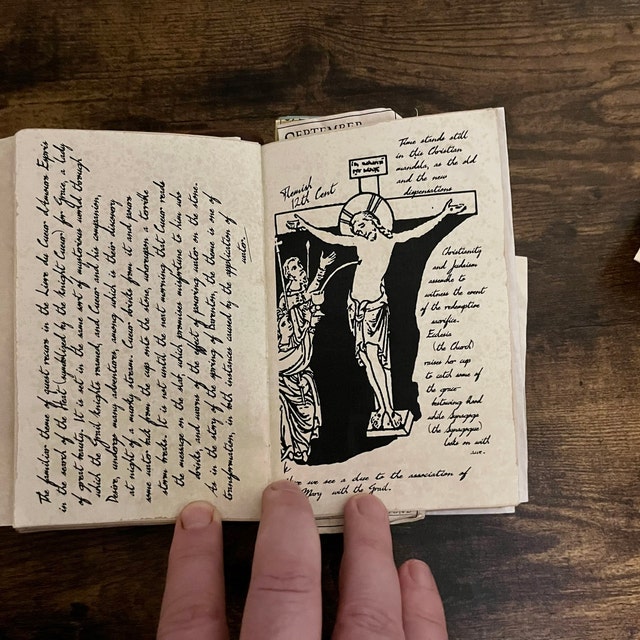 The familiar theme of quest recurs in the Livre du Cueur d'Amours Espris
in the search of the Heart (symbolised by the knight Cueur) for Grace, a lady
of great beauty. It is set in the same sort of mysterious world through
which the Grail knights roamed, and Cueur and his companion,
Desir, undergo many adventures, among which is their discovery
at night of a murky stream. Cueur drinks from it and pours
some water back from the cup onto the stone, whereupon a terrible
storm breaks. It is not until the next morning that Cueur reads
the message on the slab which promises misfortune to him who
drinks, and warns of the effect of pouring water on the stone.
As in the story of the spring of Barenton, the theme is one of
transformation, in both instances caused by the application of
water.
SEPTEMBER
Time stands still
in this Christian
mandala, as the old
and the new
dispensations
Flemish
12th Cent
Christianity
and Judaism
assemble to
witness the event
of the redemptive
sacrifice.
Eclesia
(the Church)
raises her cup
to catch some of
the grace-
bestowing blood
while Synagoga
(the Synagogue)
looks on with
awe.
we see a clue to the association of
Mary with the Grail.